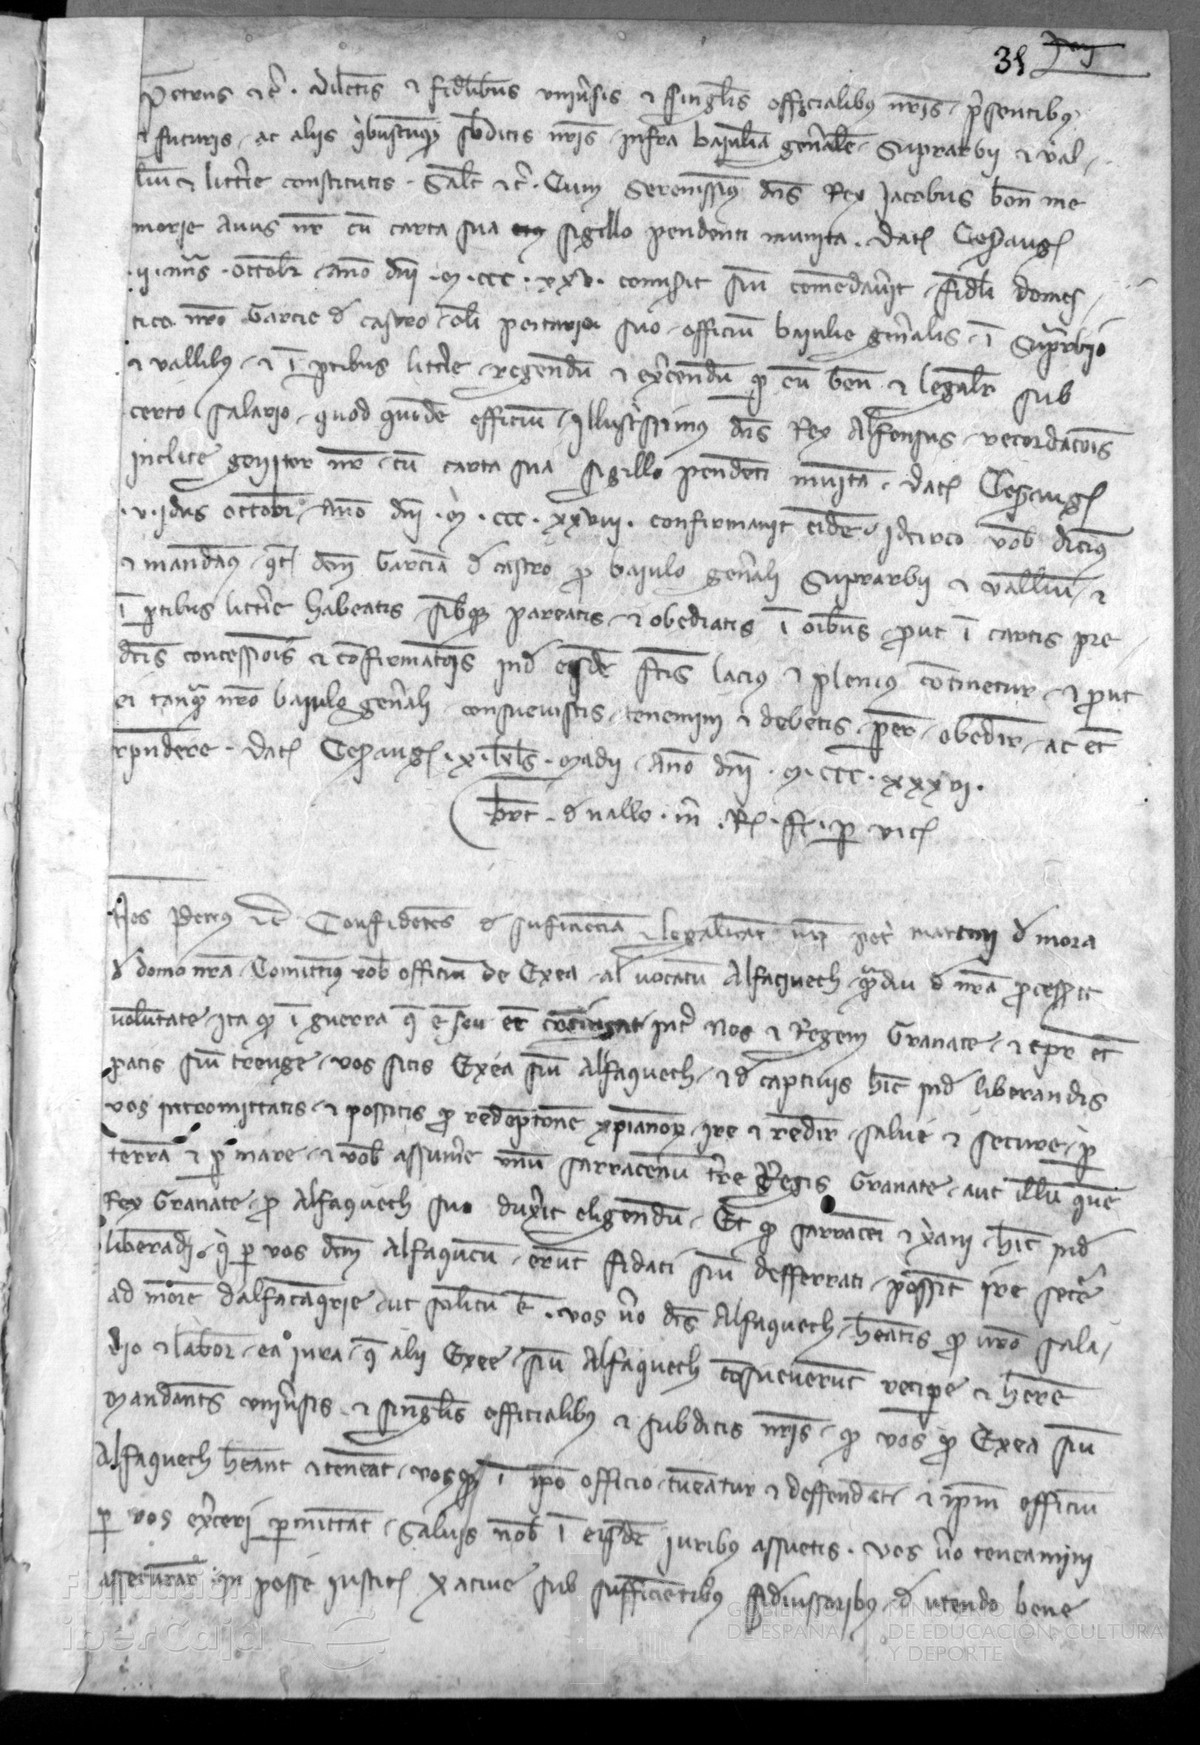 31
Petrus etc. Dilectis et fidelibus universis et singulis officialibus nostris presentibus
et futuris ac aliis quibuscumque subditis nostris infra baiuliam generalem Suprarbii et val-
lium et littere constitutis. Salutem etc. Cum Serenissimus dominus Rex Jacobus bone me
morie Avus noster cum carta sua sigillo pendenti munita. Dat Cesaraug
.ii. nonas. Octobr. Anno dni .m.ccc.xxv. comisit sive comendavit fideli domes
tico nostro Garcie de castro olim suo officium baiulie generalis in Suprarbio
et vallibus et in partibus littere regendum et exercendum per eum bene et legaliter sub
certo salario quod quidem officium Illustrissimus dns Rex Alfonsus recordacionis
inclite genitor noster cum carta sua sigillo pendenti munita. Dat Cesaraug
.v. idus octobr Anno dni .m.ccc.xxviii. confirmavit eidem. Idcirco vobis dicimus
et mandamus quatenus dictum Garciam de castro pro baiulo generali Suprarbii et vallium et
in partibus littere habeatis sibique pareatis et obediatis in omnibus prout in cartis pre
dictis concessionis et confirmationis inde eidem factis lacius et plenius continetur et prout
ei tanquam nostro baiulo generali consuevistis tenemini et debetis parere obedire ac etiam
respondere. Dat Cesaraug .x. kls. Madii Anno dni .m.ccc.xxxvi.
de vallo
Nos Petrus etc Confidentes de suficiencia et legalitate petri martini de mora
de domo nostra Comittimus vobis officium de Exea al vocatum Alfaquech quamdiu de nostra processerit
voluntate Ita quod in guerra que est seu erit inter Nos et Regem Granate et tempore etiam
pacis sive treuge vos sitis Exea sive Alfaquech et de captivis hinc inde liberandis
vos intromittatis et possitis pro redemptione xpianorum ire et redire salve et secure per
terram et per mare et vobis assumere unum sarracenum terre Regis Granate aut illum quem
Rex Granate pro Alfaquech suo duxerit eligendum. Et quod sarraceni et xpiani hinc inde
liberandi qui per vos dictum Alfaquecum erunt fidati sive defferrati possint ire secure
ad morem dalfacaquerie ut solitum est. vos vero dictus Alfaquech habeatis pro vestro sala-
rio et labore ea iura que alii Exee sive Alfaquech consueverunt recipere et habere
Mandantes universis et singulis officialibus et subditis nostris quod vos pro Exea sive
Alfaquech habeant et teneant vosque in ipso officio tueantur et deffendant et ipsum officium
per vos exerceri permittant Salvis nobis in eisdem iuribus assuetis. Vos vero teneamini
assecurare in posse iusticie xative sub sufficientibus fideiussoribus de utendo bene
Fundación
iberCaja
GOBIERNO
DE ESPAÑA
MINISTERIO
DE EDUCACIÓN, CULTURA
Y DEPORTE